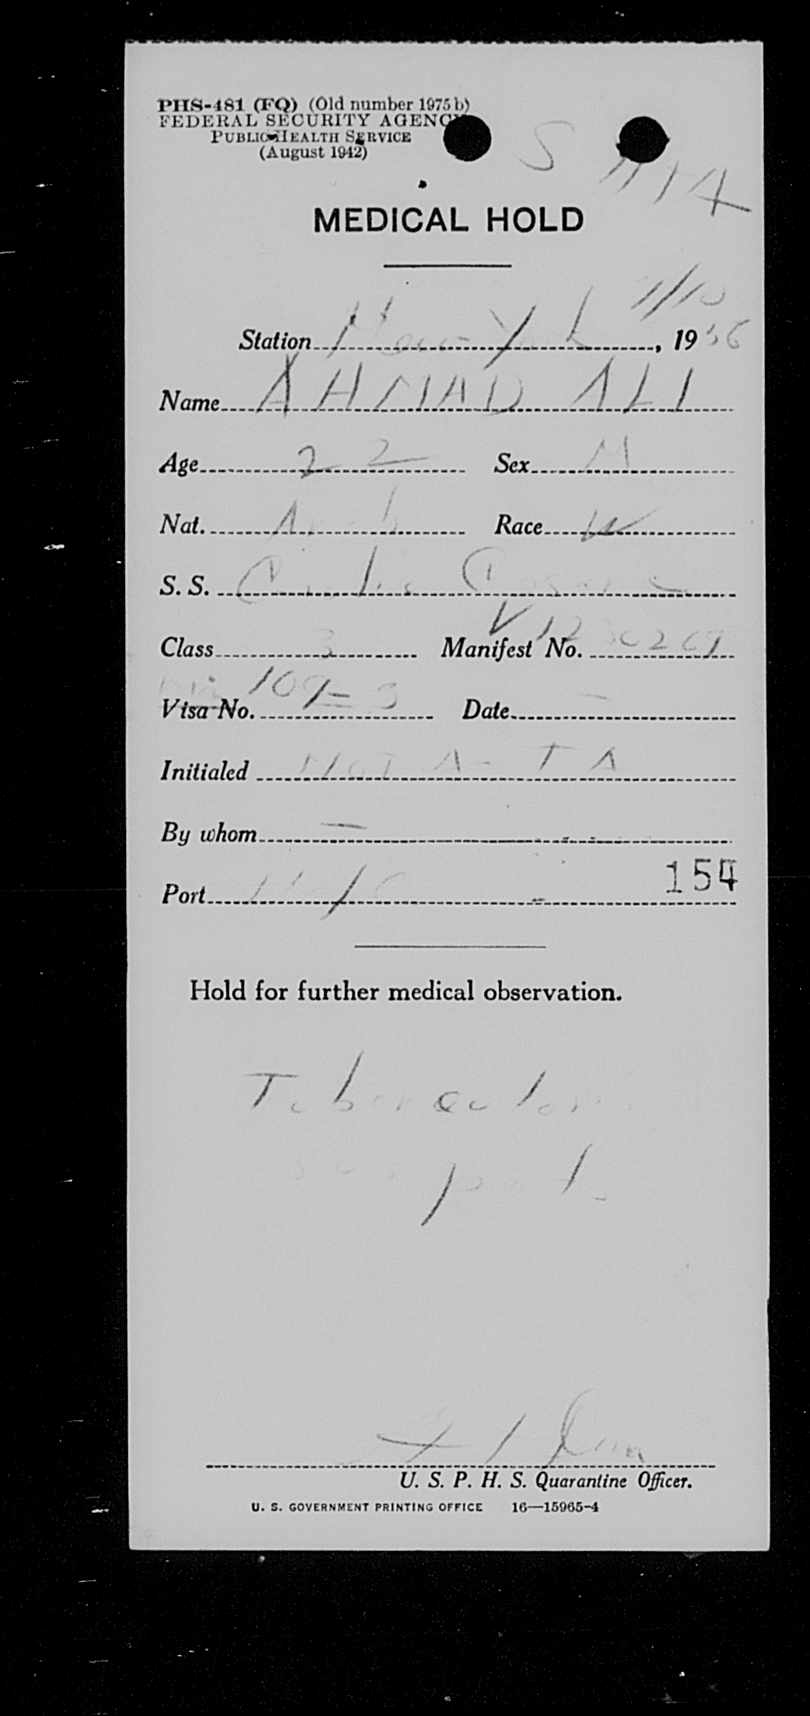 PHS-481 (FQ) (Old number 1975 b)
FEDERAL SECURITY AGENCY
PUBLIC HEALTH SERVICE
(August 1942)
S
MEDICAL HOLD
Station New York 7/10, 1956
Name AHMAD ALI
Age 22 Sex M
Nat. Arab Race W
S. S.
Class 3 Manifest No.
Visa No. 109-3 Date -
Initialed
By whom -
Port 154
Hold for further medical observation.
Tuberculosis
suspect
U. S. P. H. S. Quarantine Officer.
U. S. GOVERNMENT PRINTING OFFICE 16—15965-4